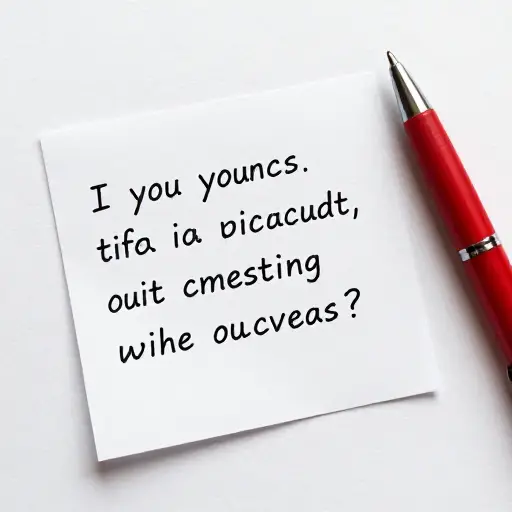 I you youncs.
tifa ia bicacudt,
ouit cmesting
wihe oucveas?